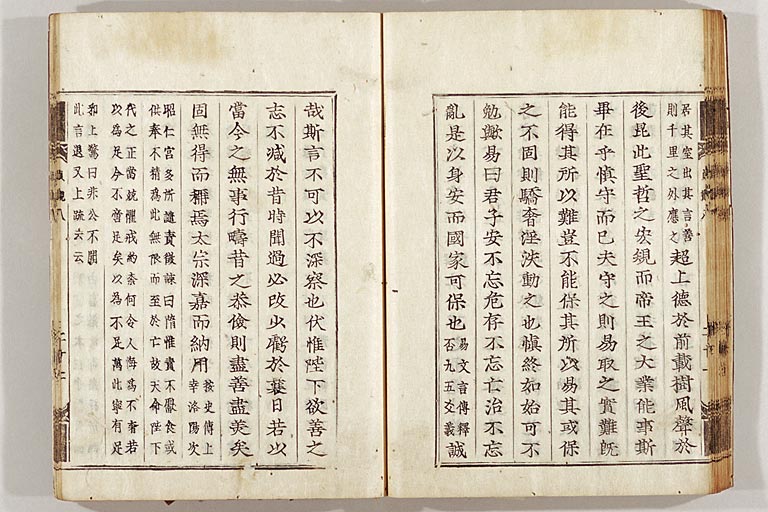 居其室出其言善
則千里之外應之
超上德於前載樹風聲於
後昆此聖哲之宏規而帝王之大業能事斯
畢在乎慎守而已夫守之則易取之實難旣
能得其所以難豈不能保其所以易其或保
之不固則驕奢淫泆動之也慎終如始可不
勉歟易曰君子安不忘危存不忘亡治不忘
亂是以身安而國家可保也
易文言傳釋
否九五爻義
誠
哉斯言不可以不深察也伏惟陛下欲善之
志不減於昔時聞過必改少虧於曩日若以
當今之無事行疇昔之恭儉則盡善盡美矣
固無得而稱焉太宗深嘉而納用
按史傳上
幸洛陽次
昭仁宮多所譴責徵諫曰隋惟責不獻食或
供奉不精爲此無限而至於亡故天命陛下
代之正當兢懼戒約奈何令人悔爲不奢若
以爲足今不啻足矣以爲不足萬此寧有足
和上驚曰非公不聞
此言退又上疏云云